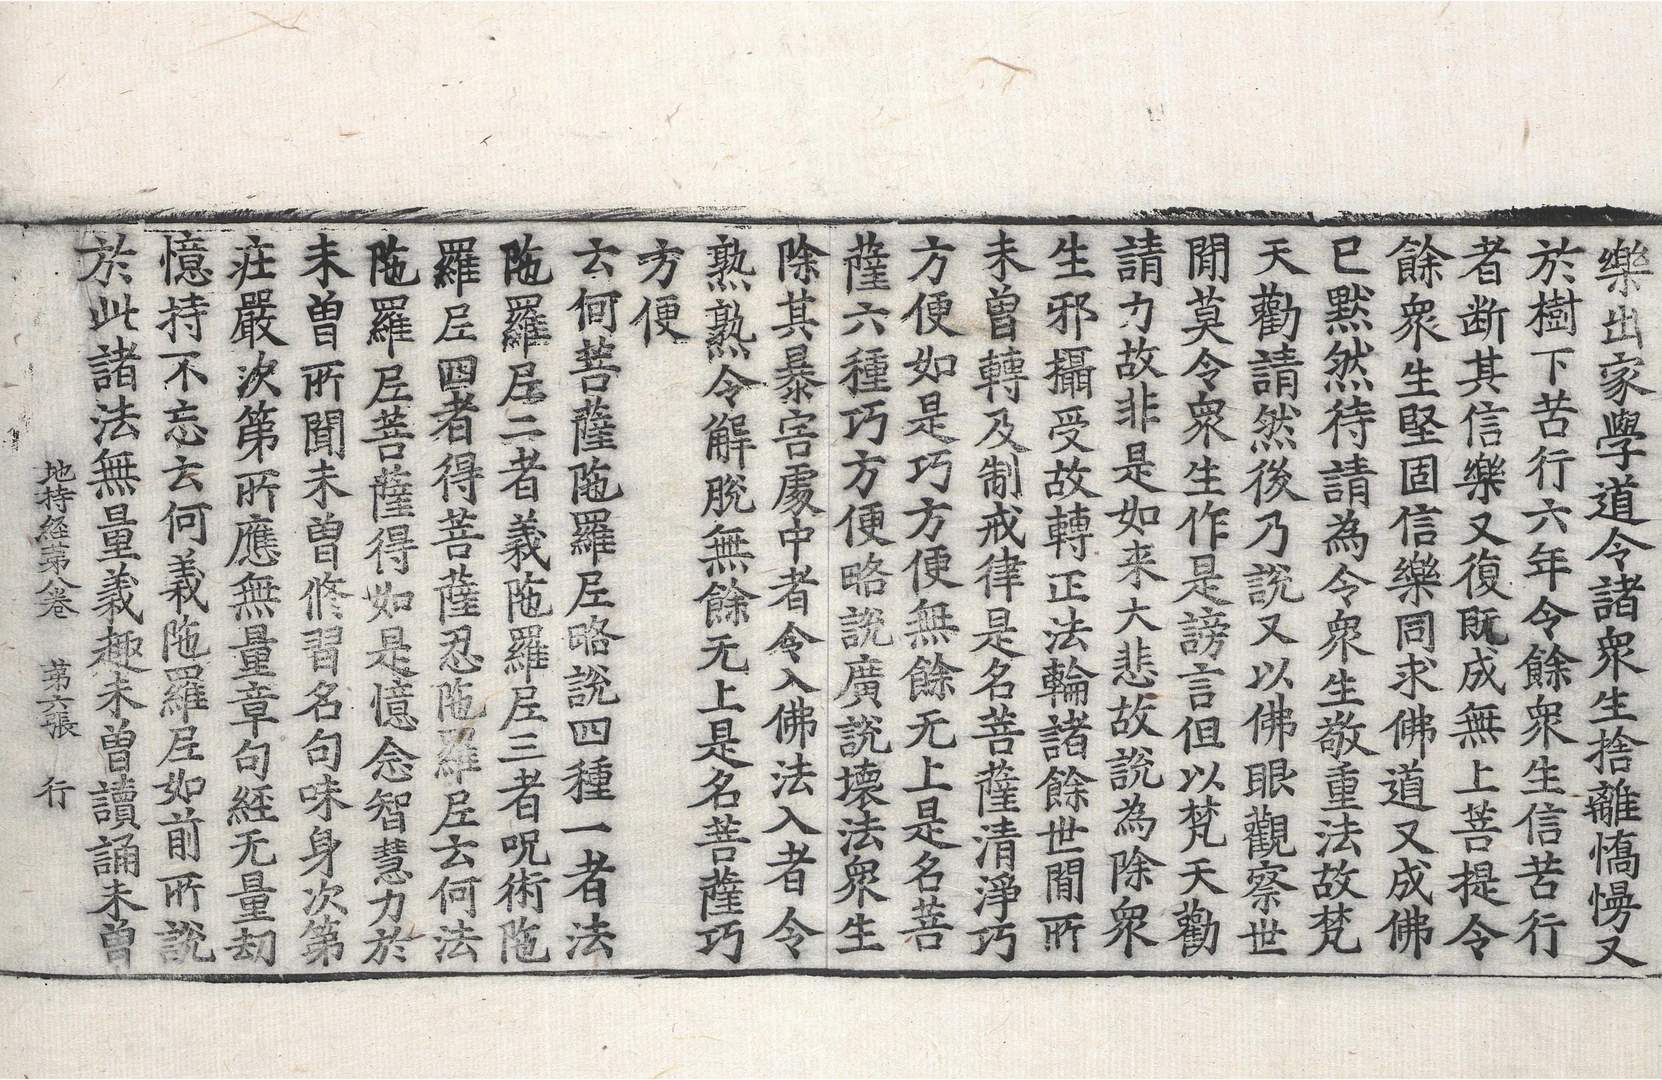 樂出家學道令諸衆生捨離憍慢又
於樹下苦行六年令餘衆生信苦行
者断其信樂又復既成無上菩提令
餘衆生堅固信樂同求佛道又成佛
已默然待請為令衆生敬重法故梵
天勸請然後乃說又以佛眼觀察世
間莫令衆生作是謗言但以梵天勸
請力故非是如来大悲故說為除衆
生邪攝受故轉正法輪諸餘世間所
未曾轉及制戒律是名菩薩清淨巧
方便如是巧方便無餘无上是名菩
薩六種巧方便略說廣說壊法衆生
除其暴害處中者令入佛法入者令
熟熟令解脫無餘无上是名菩薩巧
方便
云何菩薩陁羅尼略說四種一者法
陁羅尼二者義陁羅尼三者呪術陁
羅尼四者得菩薩忍陁羅尼云何法
陁羅尼菩薩得如是憶念智慧力於
未曾所聞未曾脩習名句味身次第
莊嚴次第所應無量章句経无量劫
憶持不忘云何義陁羅尼如前所說
於此諸法無量義趣未曾讀誦未曾
地持経第八卷 第六張 行